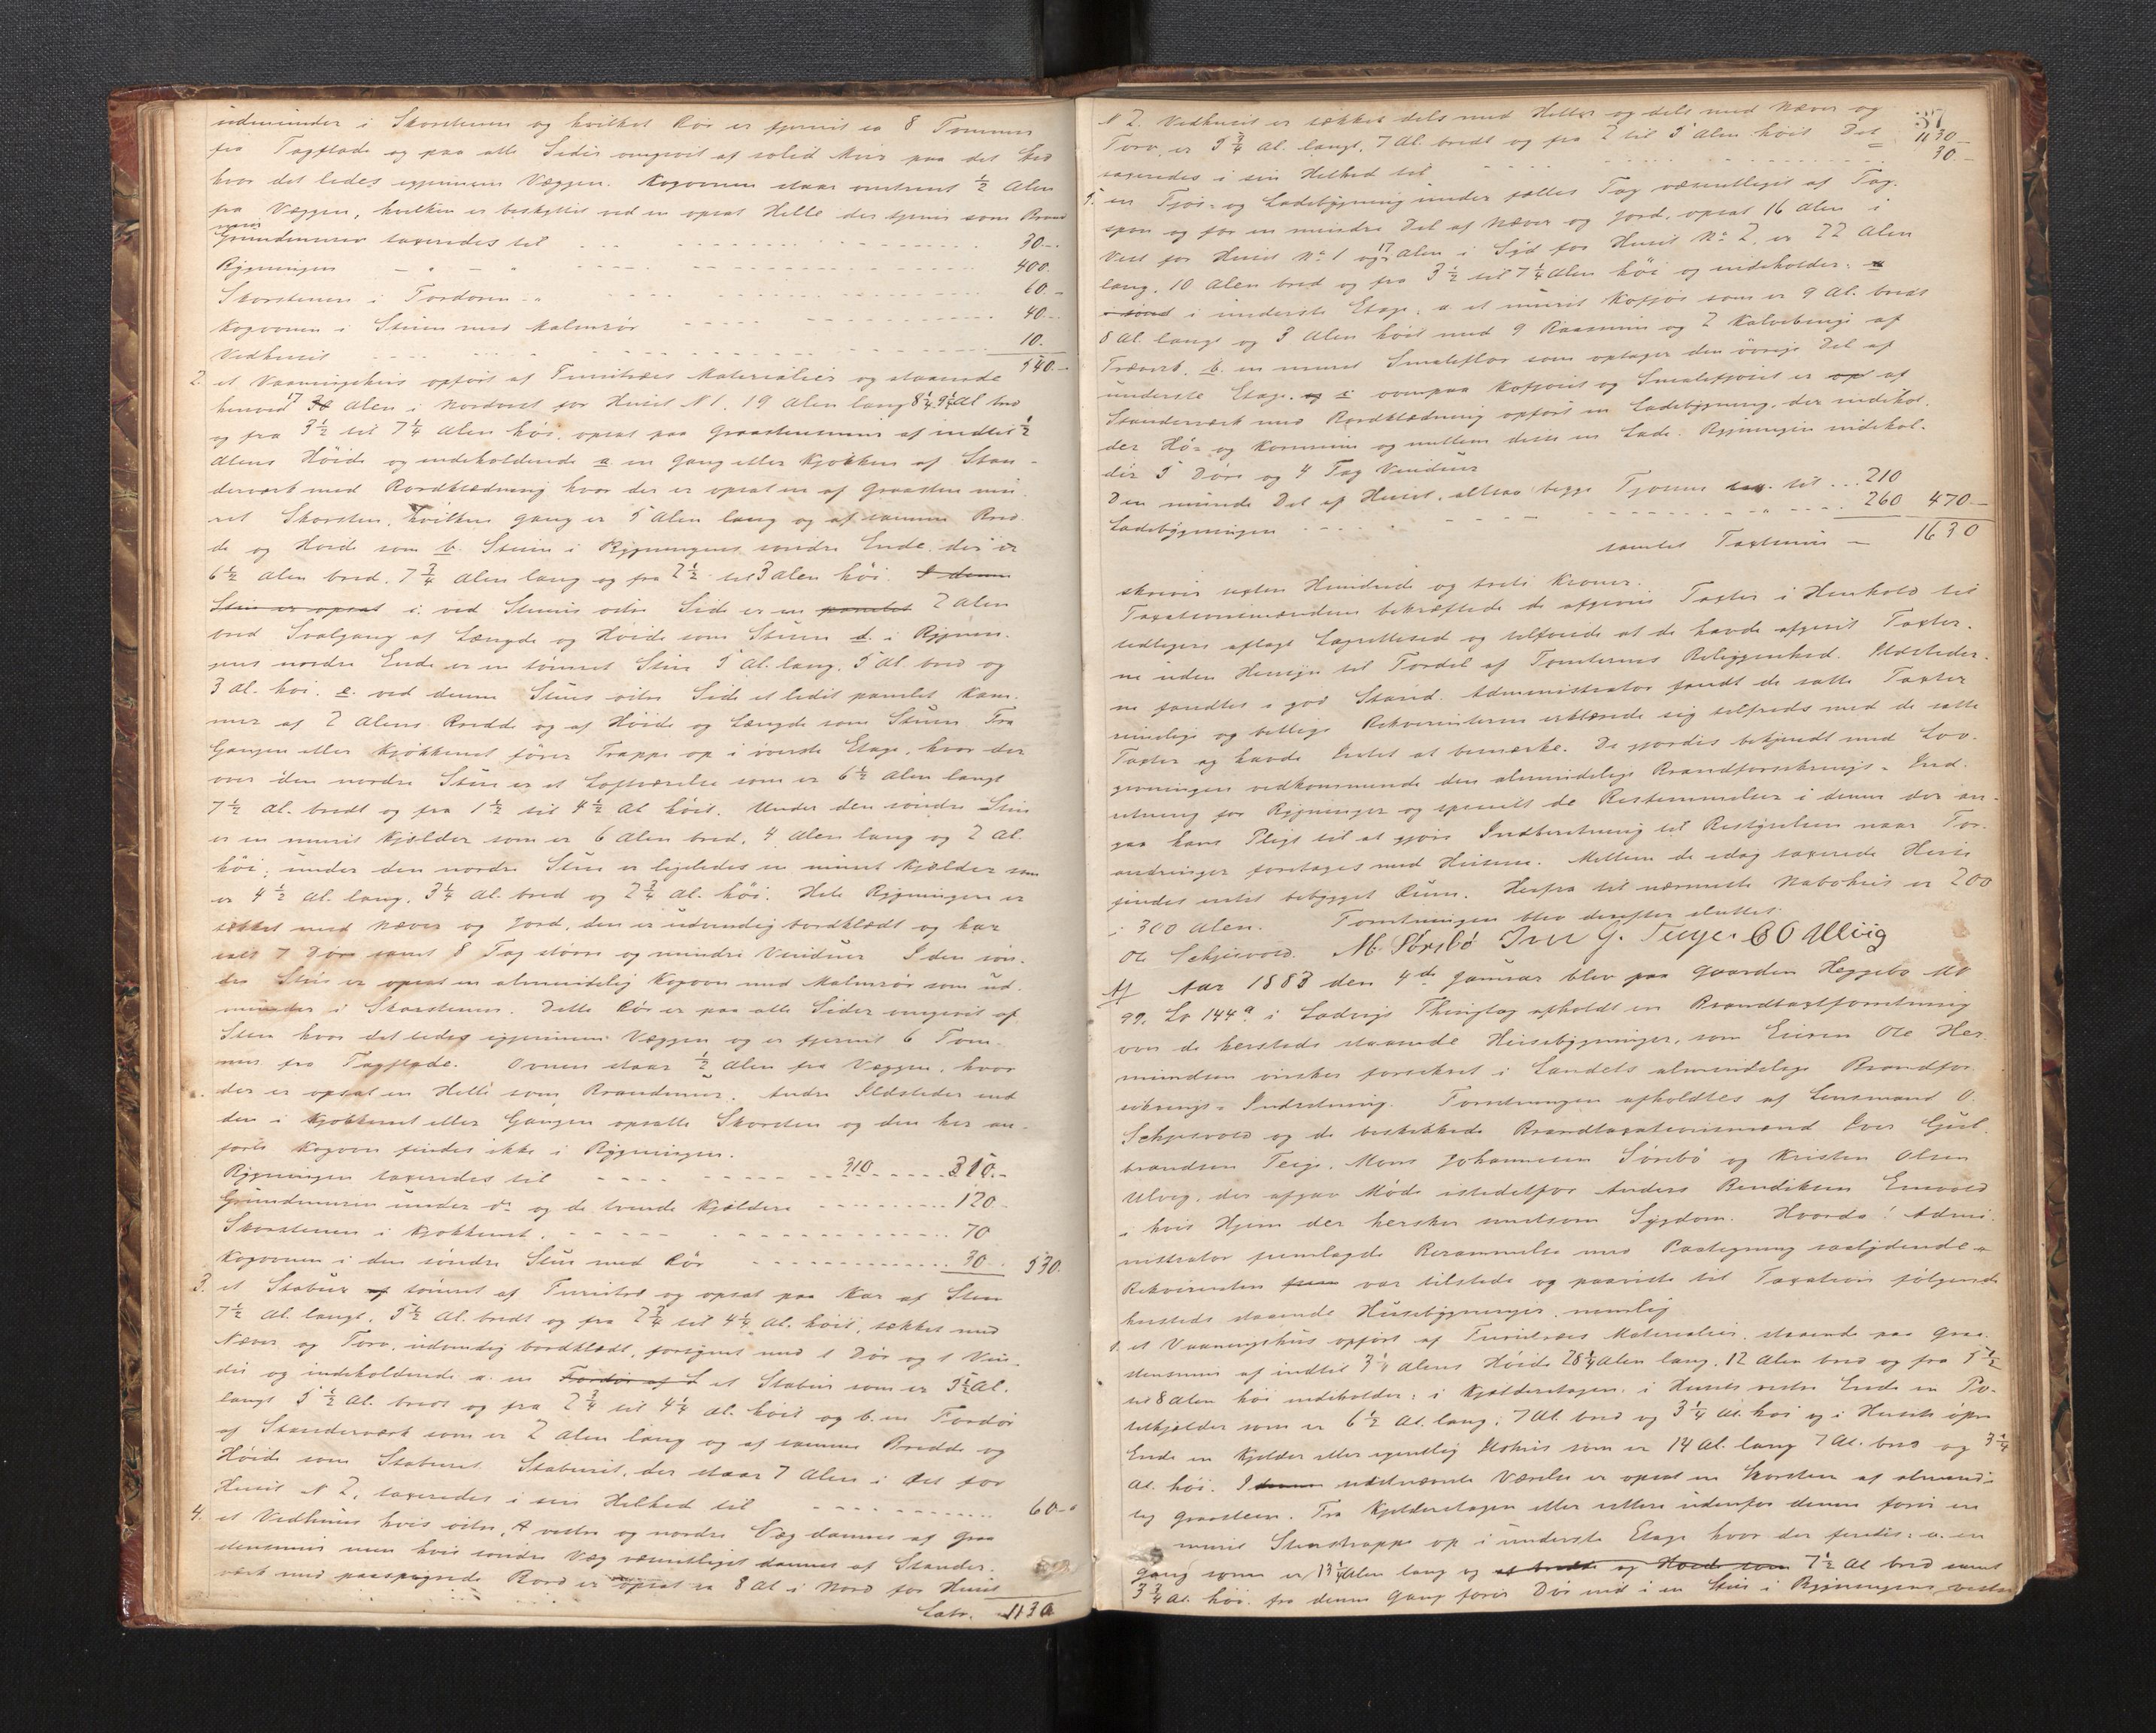 udmunder i Skorstenen og hvilket Rør er fjernet ca 8 Tommer
fra Tagflade og paa alle Sider omgivet af solid Mur paa det Sted
hvor det ledes igjennem Væggen. Kogovnen staar omtrent ½ Alen
fra Væggen, hvilken er beskyttet ved en opsat Helle der tjener som Brand
mur
Grundmuren taxeredes til 30.-
Bygningen - " - " 400.
Skorstenen i Fordøren " 60.-
Kogovnen i Stuen med Malmrør 40.-
Vedhuset 10.
540.-
2. et Vaaningshus opført af Furutræes Materialier og staaende
herved 17 30 Alen i Nordvest for Huset N 1. 19 Alen lang 8¼ Al bred
og fra 3½ til 7¼ Alen høi, opsat paa Graastensmur af indtil ½
Alens Høide og indeholdende a en Gang eller Kjøkken af Stan-
derværk med Bordklædning hvor der er opsat en af Graasten mu-
ret Skorsten, hvilken Gang er 5 Alen lang og af samme Bred-
de og Høide som b. Stuen i Bygningens søndre Ende der er
6½ Alen bred, 7¾ Alen lang og fra 2½ til 3 Alen høi. I denne
Stue er opsat c. ved Stuens østre Side er en panelet 2 Alen
bred Svalgang af Længde og Høide som Stuen d. i Bygnin-
gens nordre Ende er en tømret Stue 5 Al. lang, 5 Al. bred og
3 Al. høi. e. ved denne Stues østre Side et lidet panelet Kam-
mer af 2 Alens Bredde og af Høide og Længde som Stuen. Fra
Gangen eller Kjøkkenet fører Trappe op i øverste Etage, hvor der
over den nordre Stue er et Loftværelse som er 6½ Alen langt
7½ Al. bredt og fra 1½ til 4½ Al høit. Under den søndre Stue
er en muret Kjælder som er 6 Alen bred, 4 Alen lang og 2 Al.
høi; under den nordre Stue er ligeledes en muret Kjælder som
er 4½ Al. lang, 3¼ Al. bred og 2¾ Al. høi. Hele Bygningen er
tækket med Næver og Jord, den er udvendig bordklædt og har
ialt 7 Døre samt 8 Fag større og mindre Vinduer. I den søn-
dre Stue er opsat en almindelig Kogovn med Malmrør som ud-
munder i Skorstenen. Dette Rør er paa alle Sider omgivet af
Sten hvor det ledes igjennem Væggen og er fjernet 6 Tom-
mer fra Tagflade. Ovnen staar ½ Alen fra Væggen, hvor
der er opsat en Helle som Brandmur. Andre Ildsteder end
den i Kjøkkenet eller Gangen opsatte Skorsten og den her an-
førte Kogovn findes ikke i Bygningen.
Bygningen taxeredes til 310 310.-
Grundmuren under do og de tvende Kjældere 120.-
Skorstenen i Kjøkkenet 70
Kogovnen i den søndre Stue med Rør 30.- 530.
3. et Stabur af tømret af Furutræ og opsat paa Kar af Sten
7½ Al. langt, 5½ Al. bredt og fra 2¾ til 4¼ Al. høit, tækket med
Næver og Torv, udvendig bordklædt, forsynet med 1 Dør og 1 Vin-
due og indeholdende a. en Fordør af S et Stabur som er 5½ Al.
langt 5½ Al. bredt og fra 2¾ til 4¼ Al. høit og b. en Fordør
af Standerværk som er 2 Alen lang og af samme Bredde og
Høide som Staburet. Staburet, der staar 7 Alen i Øst for
Huset N 2, taxeredes i sin Helhed til 60.-
4. et Vedhuus hvis østre, vestre og nordre Væg dannes af Graa
stensmur men hvis søndre Væg væsentligst dannes af Stander-
værk med paaspigrede Bord er opsat ca 8 Al i Nord for Huset
Latr. 1130
37
N 2. Vedhuset er tækket dels med Heller og dels med Næver og 1130-
Torv, er 5¾ Al. langt, 7 Al. bredt og fra 2 til 5 Alen høit. Det
taxeredes i sin Helhed til 30.-
5. en Fjøs- og Ladebygning under fælles Tag væsentligst af Tag-
spon og for en mindre Del af Næver og Jord, opsat 16 Alen i
Vest for Huset No 1 og 17 Alen i Syd for Huset No 2, er 22 Alen
lang, 10 Alen bred og fra 3½ til 7¼ Alen høi og indeholder:
i underste Etage: a et muret Kofjøs som er 9 Al. bredt
8 Al. langt og 3 Alen høit med 9 Baasrum og 2 Kalvebinge af
Træverk, b. en muret Smaleflor som optager den øvrige Del af
underste Etage, og c ovenpaa Kofjøset og Smalefjøset er op af
Standerværk med Bordklædning opført en Ladebygning, der indehol-
der Hø- og Kornrum og mellem disse en Lade. Bygningen indehol-
der 5 Døre og 4 Fag Vinduer
Den murede Del af Huset, altsaa begge Fjøsene tax. til 210
Ladebygningen 260 470.-
samlet Taxtsum - 1630
skriver sexten Hundrede og treti Kroner.
Taxationsmændene bekræftede de afgivne Taxter i Henhold til
tidligere aflagt Lagretteseed og tilføiede at de havde afgivet Taxter-
ne uden Hensyn til Fordel af Tomternes Beliggenhed. Ildsteder-
ne fandtes i god Stand. Administrator fandt de satte Taxter
rimelige og billige. Rekvirenterne erklærede sig tilfreds med de satte
Taxter og havde Intet at bemærke. De gjordes bekjendt med Lov-
givningen vedkommende den almindelige Brandforsikrings-Ind-
retning for Bygninger og specielt de Bestemmelser i denne der an-
gaa hans Pligt til at gjøre Indberetning til Bestyrelsen naar For-
andringer foretages med Husene. Mellem de idag taxerede Huse
findes intet bebygget Rum. Herfra til nærmeste Nabohus er 200
à 300 Alen. Forretningen blev derefter sluttet.
Ole Schjesvold. M. Sørsbø Iver G. Teige. C O Ulvig
Aar 1883 den 4de Januar blev paa Gaarden Heggebø M
99, Lo 144a i Ladvigs Thinglag afholdt en Brandtaxtforretning
over de hersteds staaende Husebygninger, som Eieren Ole Her-
mundsen ønsker forsikret i Landets almindelige Brandfor-
sikrings-Indretning. Forretningen afholdtes af Lensmand O.
Schjesvold og de beskikkede Brandtaxationsmænd Iver Gul-
brandsen Teige, Mons Johannesen Sørebø og Kristen Olsen
Ulvig, der afgav Møde istedetfor Anders Bendiksen
i hvis Hjem der hersker smitsom Sygdom. Hvorda! Admi-
nistrator fremlagde Berammelse med Paategning saalydende
Rekvirenten var tilstede og paaviste til Taxation følgende
hersteds staaende Husebygninger nemlig
1. et Vaaningshus opført af Furutræes Materialier, staaende paa Graa-
stensmur af indtil 3¼ Alens Høide 28¼ Alen lang, 12 Alen bred og fra 5½
til 8 Alen høi indeholder: i Kjælderetagen, i Husets vestre Ende en Po-
tetkjælder som er 6½ Al. lang, 7 Al. bred og 3¼ Al. høi og i Husets østre
Ende en Kjelder eller egentlig Ildhus som er 14 Al. lang 7 Al. bred og 3¼
Al. høi. I denne sidstnævnte Værelse er opsat en Skorsten af alminde-
lig Graasteen. Fra Kjelderetagen eller rettere udenfor denne fører en
muret Stenstrappe op i underste Etage hvor der findes: a. en
Gang som er 13¼ Alen lang og af bredde og Høide som 7½ Al bred samt
3¾ Al. høi. fra denne Gang fører Dør ind i en Stue i Bygningens vestre